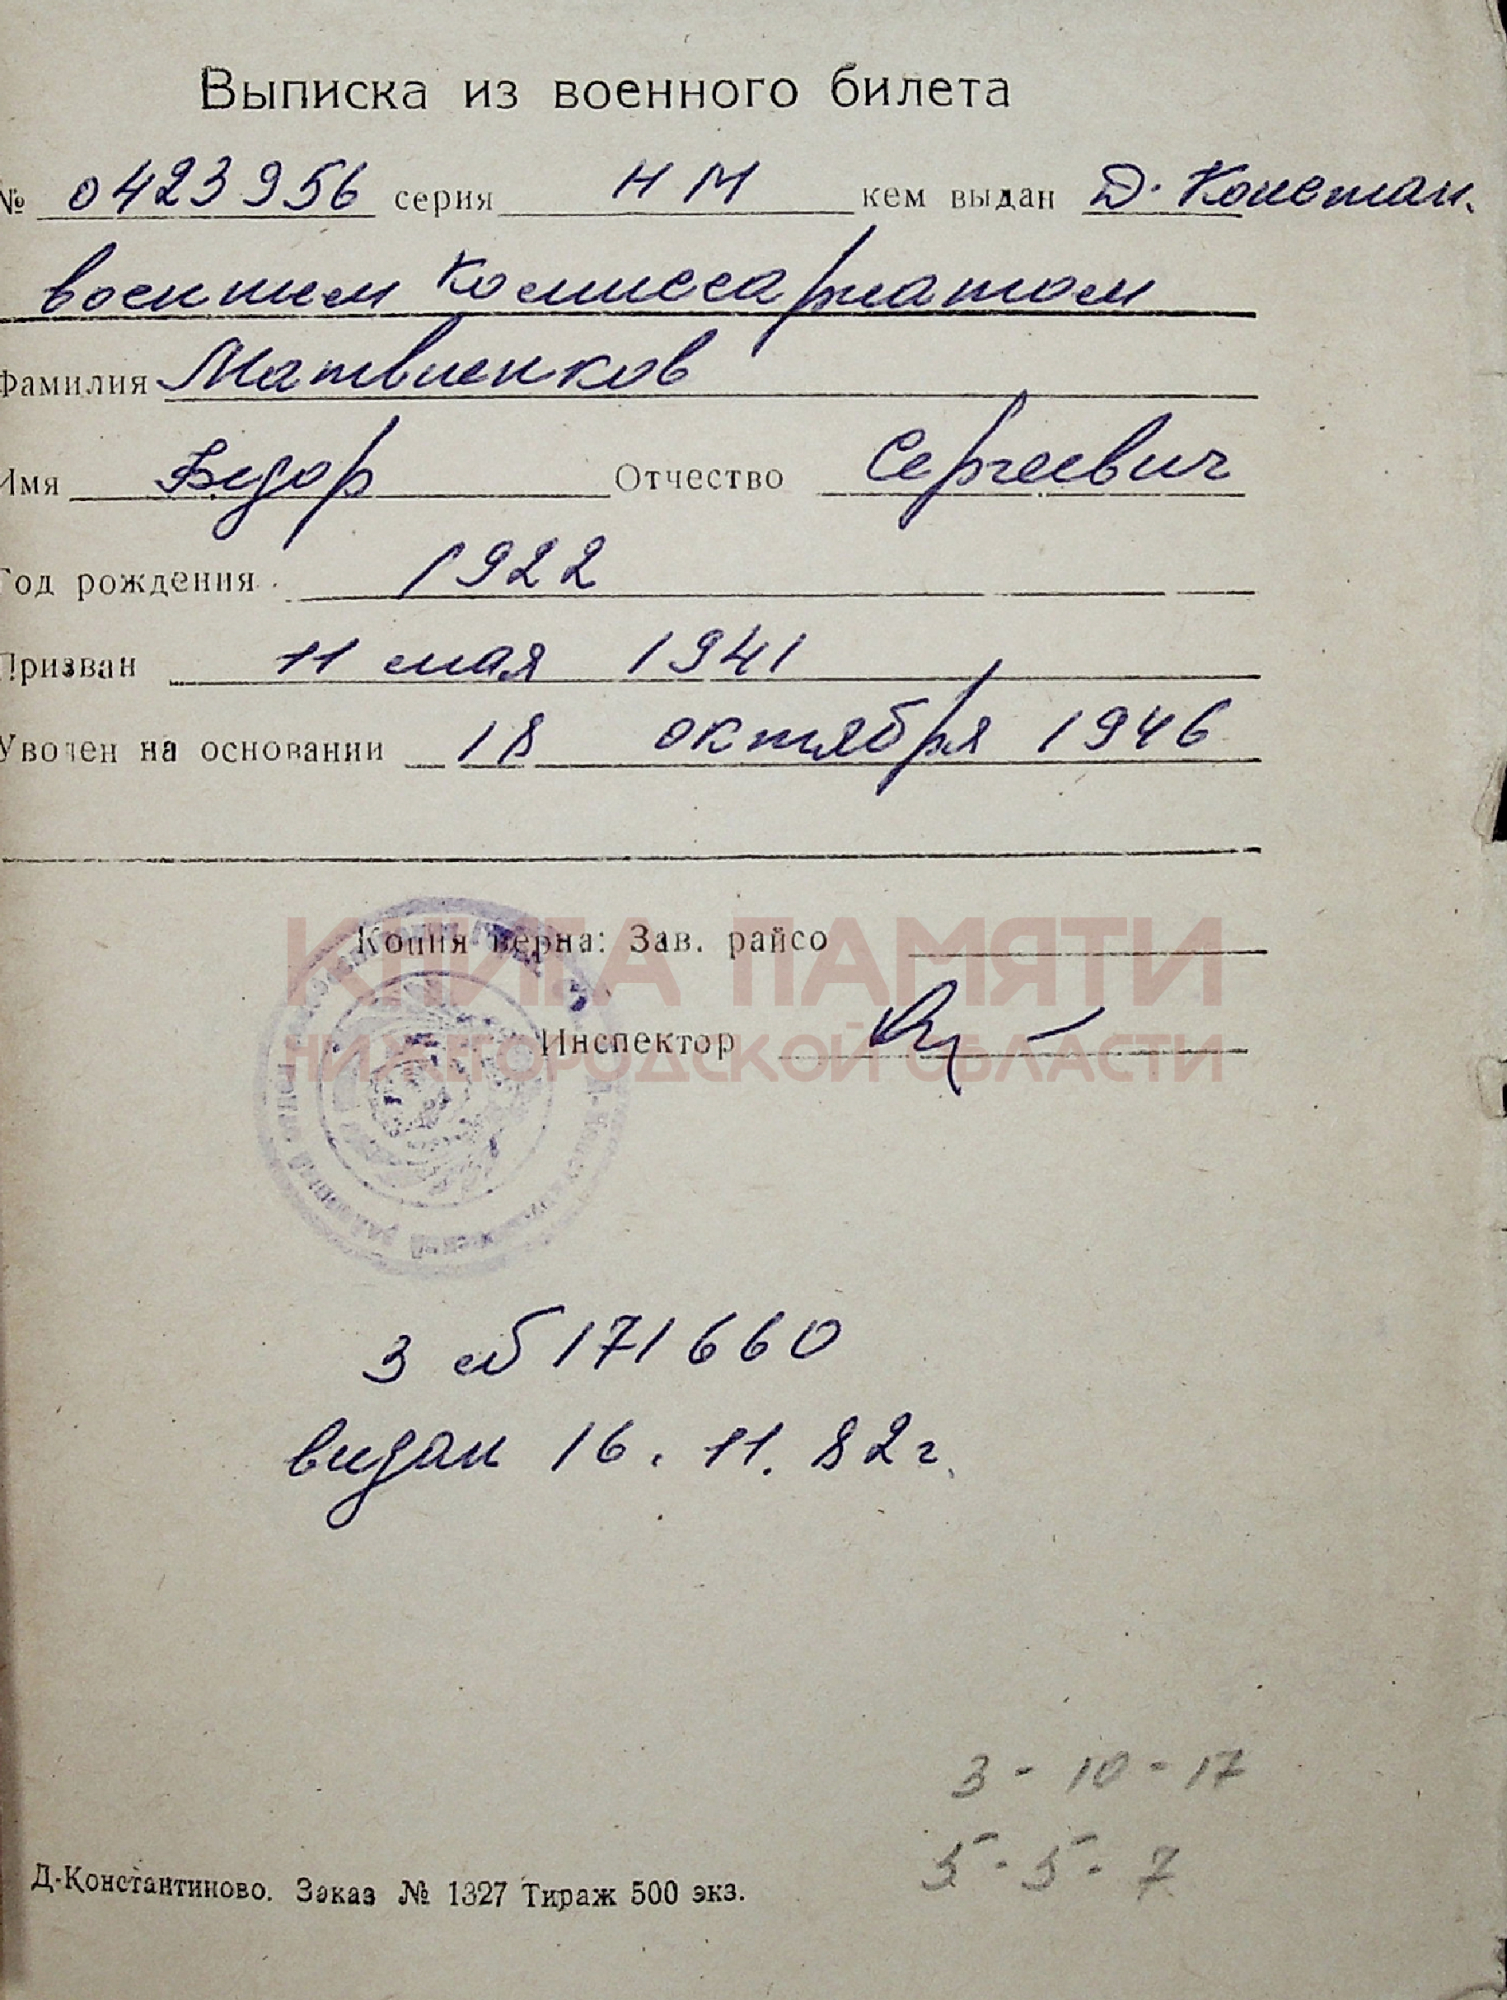 Выписка из военного билета
№ 0423956 серия НМ кем выдан Д. Констан.
военным комиссариатом
Фамилия Матвиенков
Имя Федор Отчество Сергеевич
Год рождения 1922
Призван 11 мая 1941
Уволен на основании 18 октября 1946
КНИГА ПАМЯТИ
Копия верна: Зав. райсо
Инспектор
НИЖЕГОРОДСКОЙ ОБЛАСТИ
171660
выдан 16. 11. 82 г.
3 - 10 - 17
5 - 5 - 7
Д-Константиново. Заказ № 1327 Тираж 500 экз.